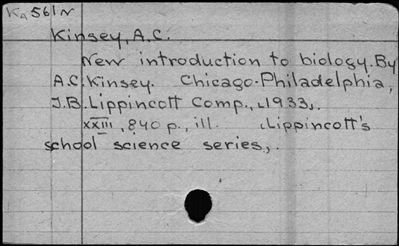 KA 561N
Kinsey, A.C.
New introduction to biology. By
A.C. Kinsey. Chicago-Philadelphia,
J.B. Lippincott Comp., [1933].
XXIII, 840 p., ill. (Lippincott's
school science series).